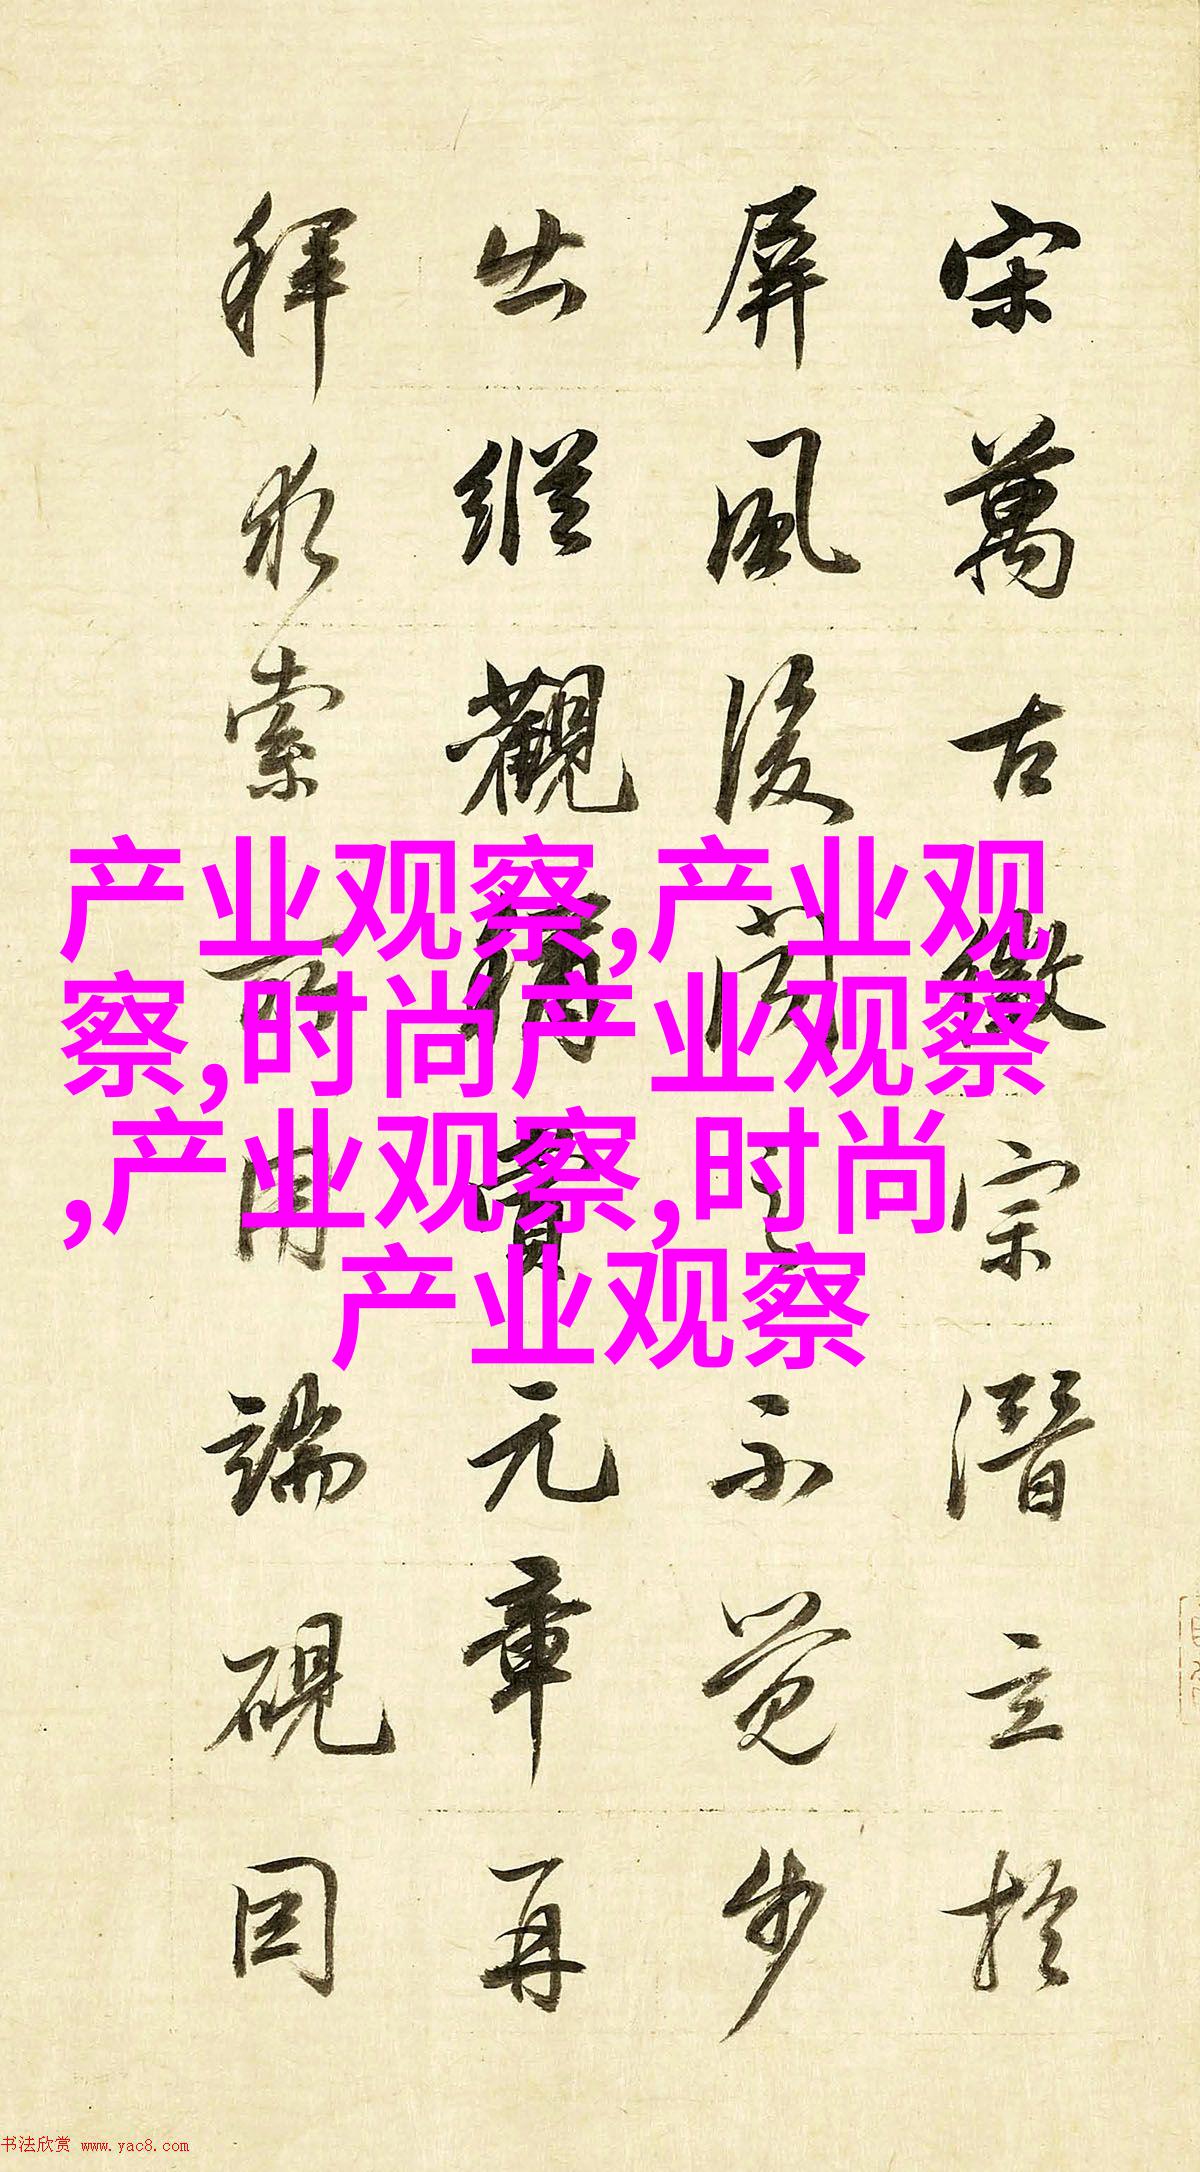 宋萬古徽宗潛立於
屏風後閱之不覺步
出縱觀稱賞元章再
拜求索所用端硯因
产业观察,产业观
察,时尚产业观察
,产业观察,时尚
产业观察
书法欣赏 www.yac8.com